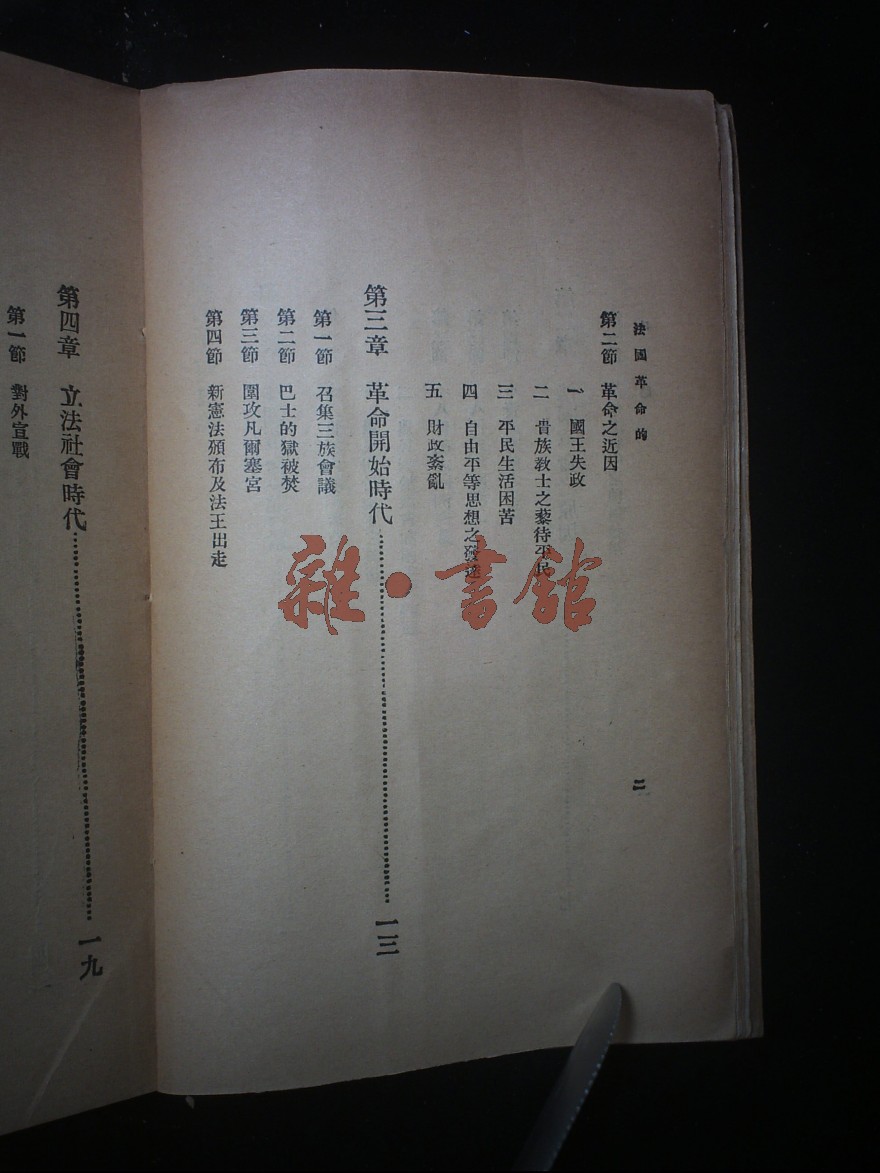 法國革命的
二
第二節 革命之近因
一 國王失政
二 貴族敎士之藜待平民
三 平民生活困苦
四 自由平等思想之發達
五 財政紊亂
第三章 革命開始時代……一三
第一節 召集三族會議
第二節 巴士的獄被焚
第三節 圍攻凡爾塞宮
第四節 新憲法頒布及法王出走
第四章 立法社會時代……一九
第一節 對外宣戰
雜·書館